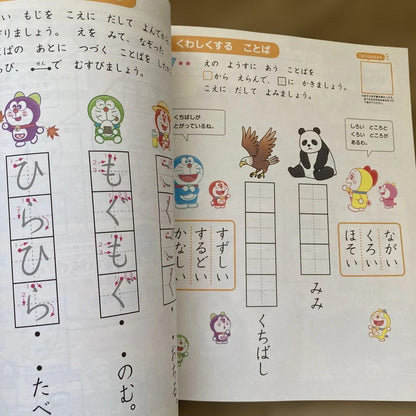 い もじを こえに だして よんでから
りましょう。 えを みて、 なぞった
ばの あとに つづく ことばを した
び、 せん で むすびましょう。
もぐもぐ
ひらひら
のむ。
たべ
くわしくする ことば
えの ようすに あう ことばを
□から えらんで、□に かきましょう。
こえに だして よみましょう。
しろい ところと
くろい ところが
あるね。
くちばしが
とがっているね。
ながい
くろい
ほそい
みみ
くちばし
すずしい
するどい
かなしい